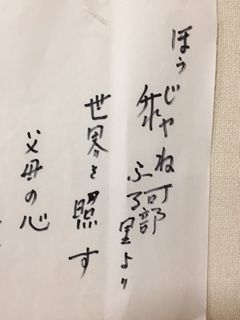 ほうじゃね可部
ふる里より
世界を照す
父母の心